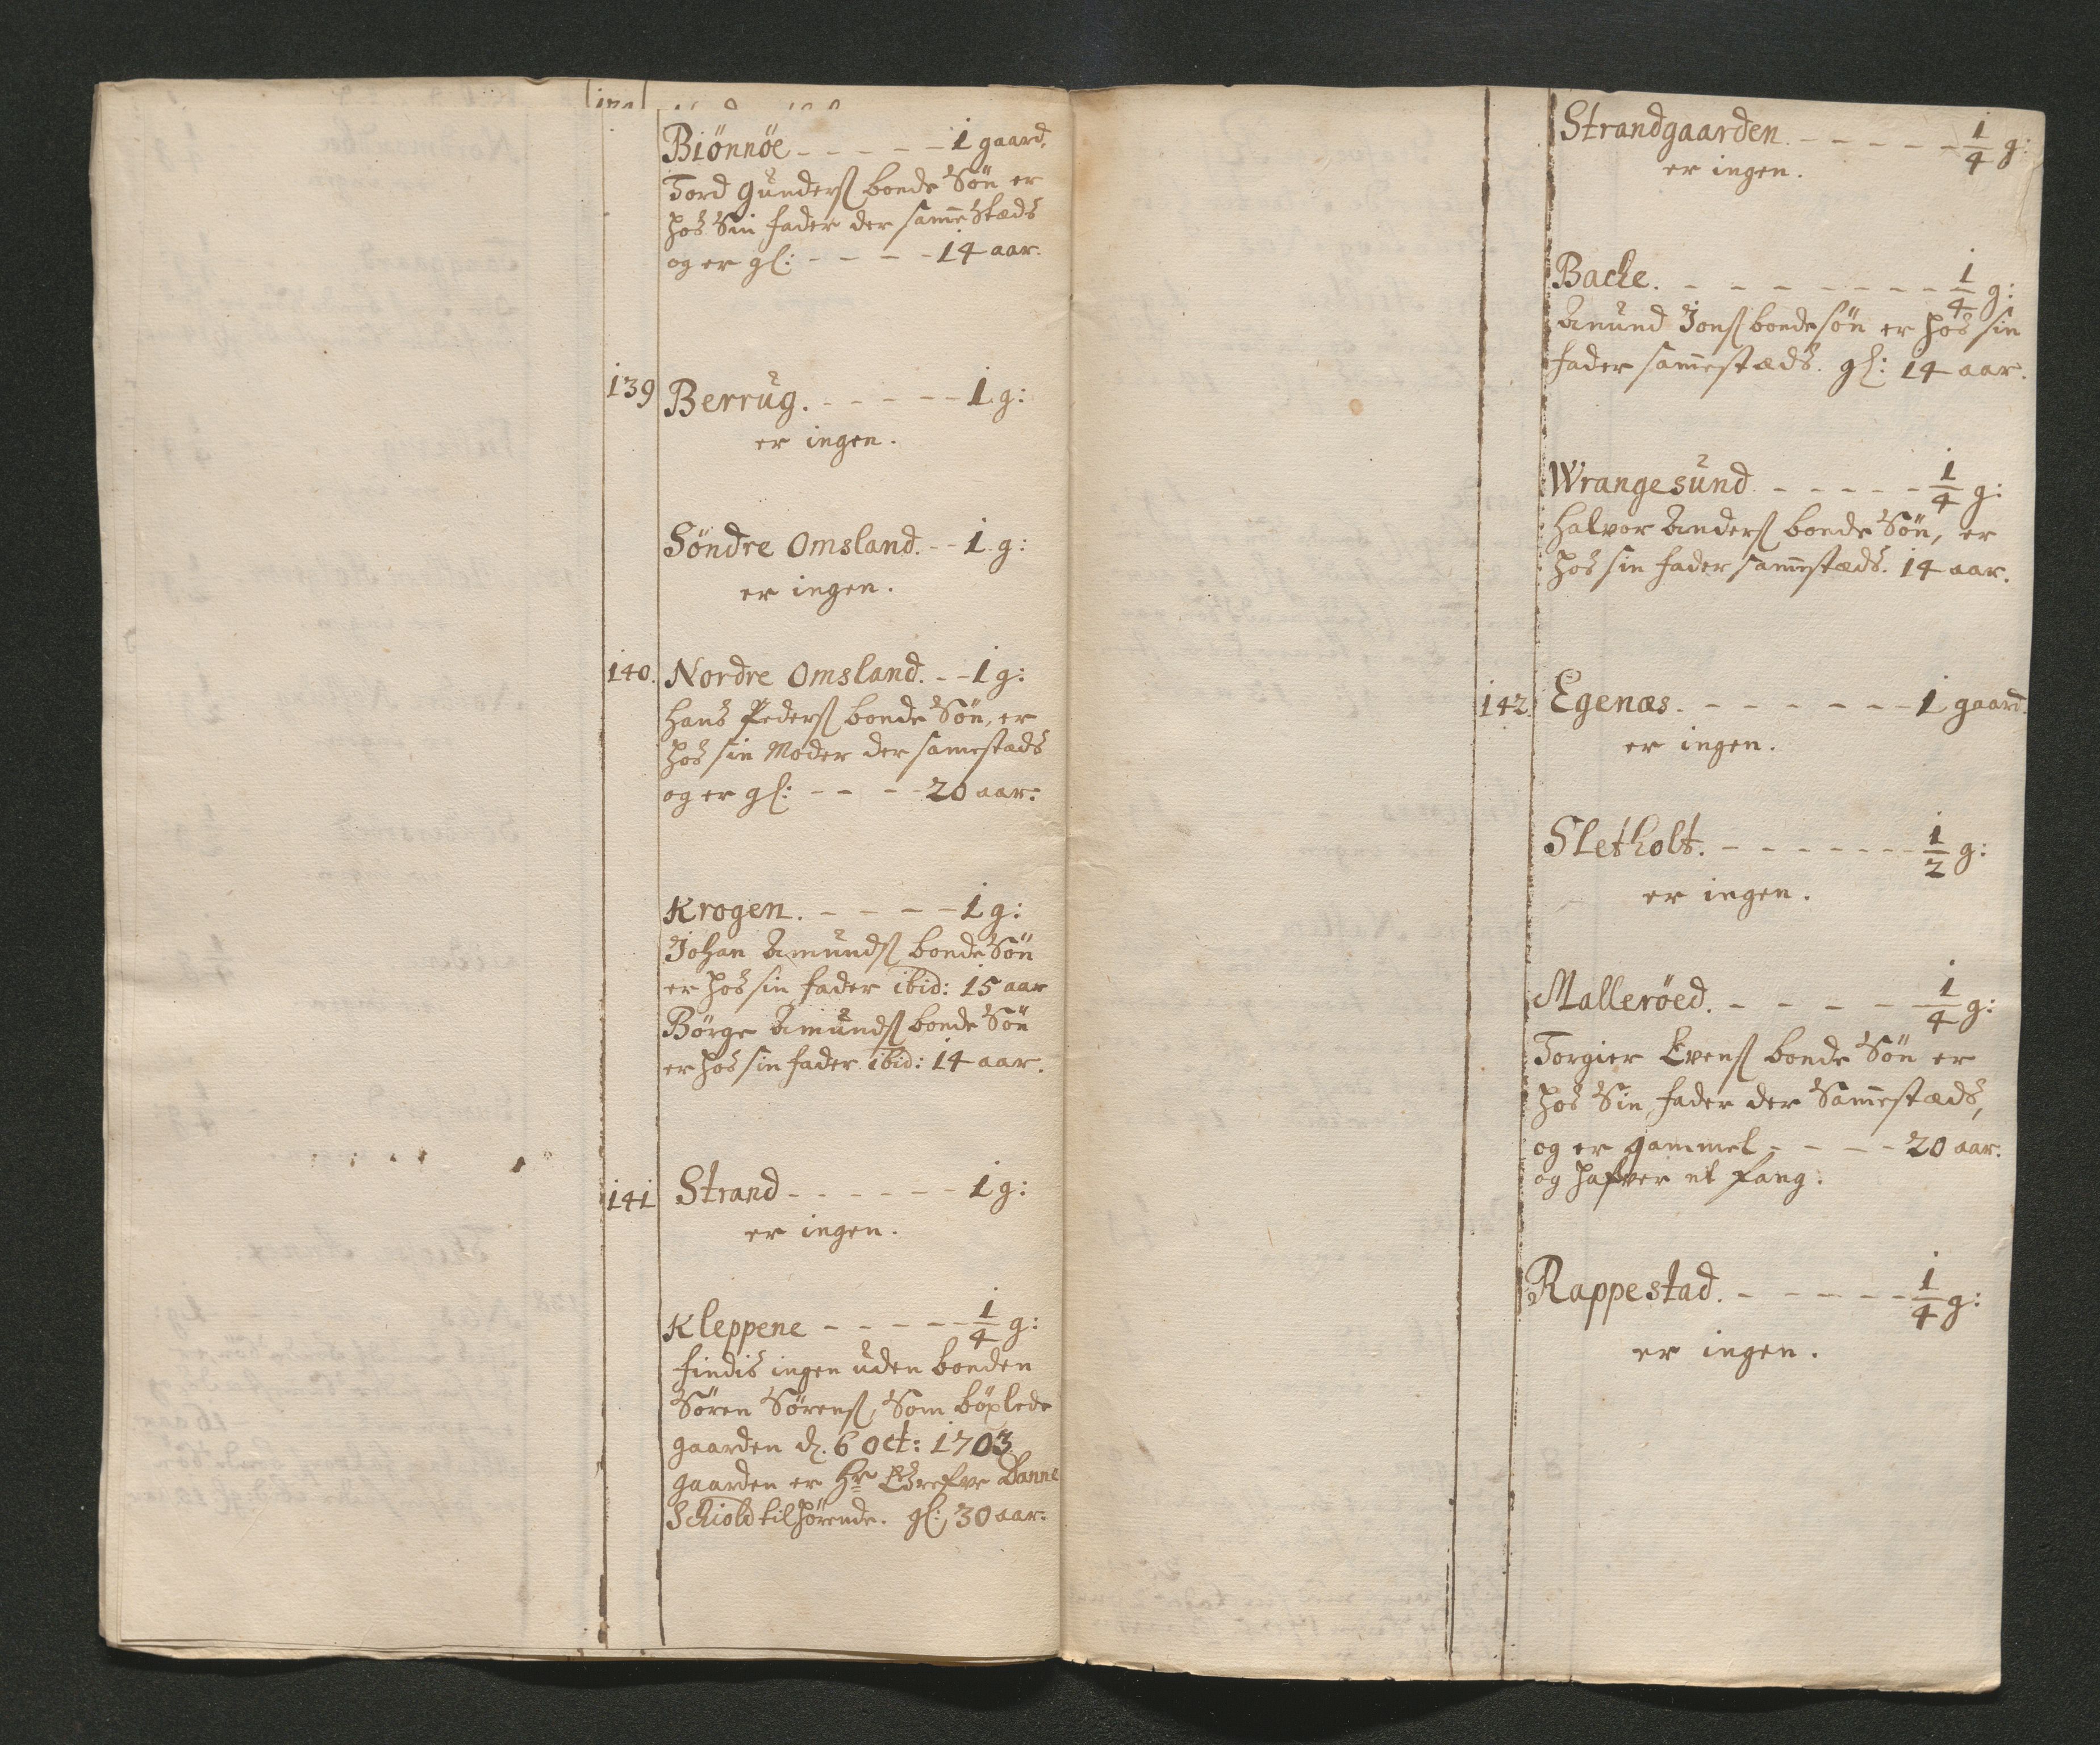 Biönnöe - - - - - 1 gaard.
Tord Gunders. bonde Søn er
hos Sin fader der sammestæds
og er gl: - - - - 14 aar.
139 Berrug. - - - - - 1 g:
er ingen.
Söndre Omsland. - - 1 g:
er ingen.
140. Nordre Omsland. - - 1 g:
Hans Peders. bonde Søn, er
hos sin Moder der samestæds
og er gl: - - - - 20 aar:
Krogen. - - - - 1 g:
Johan Amunds. bonde Søn
er hos sin fader ibid: 15 aar
Börge Amunds. bonde Søn
er hos sin fader ibid: 14 aar.
141 Strand - - - - - - 1 g:
er ingen.
Kleppene - - - - - 1/4 g:
findis ingen uden bonden
Sören Sörens. Som böxlede
gaarden d. 6 Oct: 1703
gaarden er Hr Danne
Schiold tilhörende. gl: 30 aar:
Strandgaarden. - - - - - 1/4 g:
er ingen.
Backe. - - - - - - - - 1/4 g:
Anund Jons. bonde søn er hos sin
fader samestæds. gl: 14 aar.
Wrangesund - - - - - 1/4 g:
Halvor Anders. bonde Søn, er
hos sin fader samestæds. 14 aar.
142. Egenæs. - - - - - - 1 gaard.
er ingen.
Sletholt. - - - - - - - 1/2 g:
er ingen.
Malleröed. - - - - - 1/4 g:
Torgier Evens. bonde Søn er
hos Sin fader der Samestæds,
og er gammel - - - - 20 aar.
og hafver et fang:
Rappestad. - - - - - - 1/4 g:
er ingen.